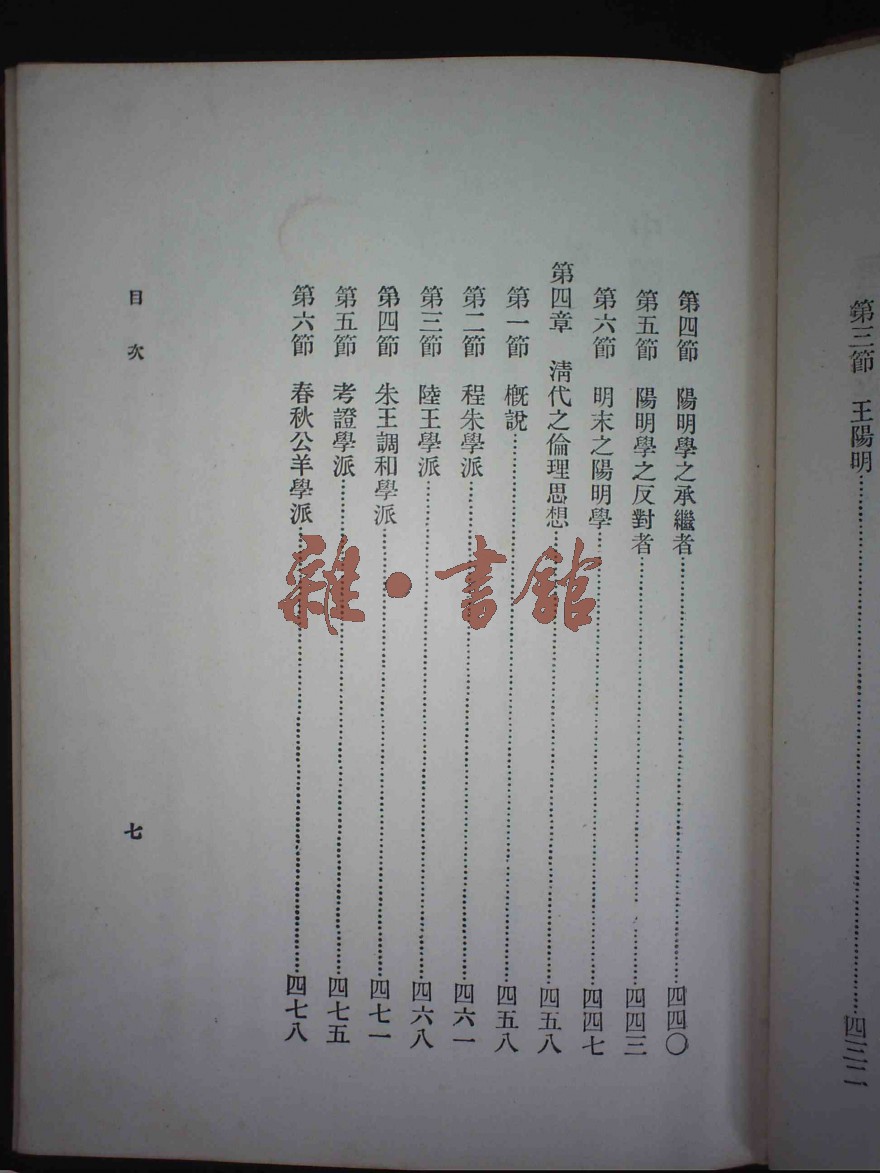 第三節　王陽明……四三二
第四節　陽明學之承繼者……四四〇
第五節　陽明學之反對者……四四三
第六節　明末之陽明學……四四七
第四章　淸代之倫理思想……四五八
第一節　槪說……四五八
第二節　程朱學派……四六一
第三節　陸王學派……四六八
第四節　朱王調和學派……四七一
第五節　考證學派……四七五
第六節　春秋公羊學派……四七八
目次
七
雜·書館